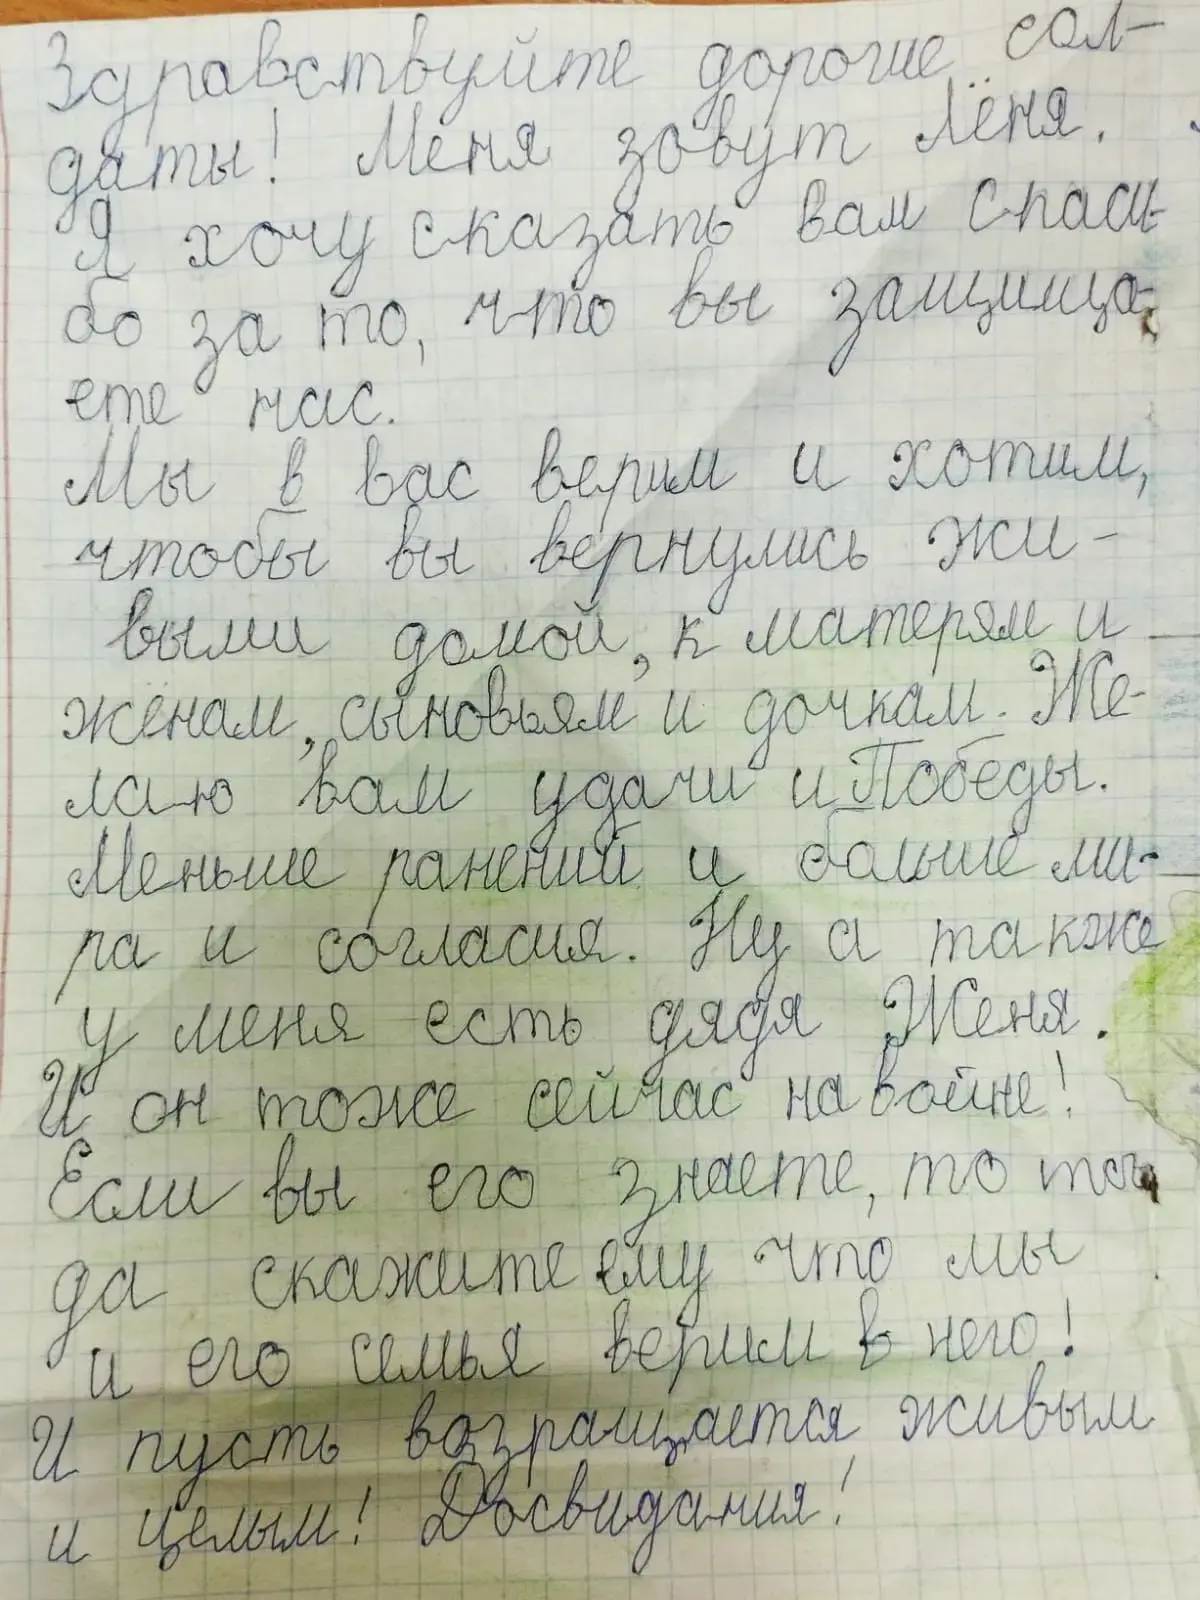 Здравствуйте дорогие сол-
даты! Меня зовут Лёня.
Я хочу сказать вам спаси-
бо за то, что вы защища-
ете нас.
Мы в вас верим и хотим,
чтобы вы вернулись жи-
выми домой, к матерям и
женам, сыновьям и дочкам. Же-
лаю вам удачи и Победы.
Меньше ранений и больше ми-
ра и согласия. Ну а также
у меня есть дядя Женя.
И он тоже сейчас на войне!
Если вы его знаете, то тог
да скажите ему что мы
и его семья верим в него!
И пусть возгращается живым
и целым! Досвидания!